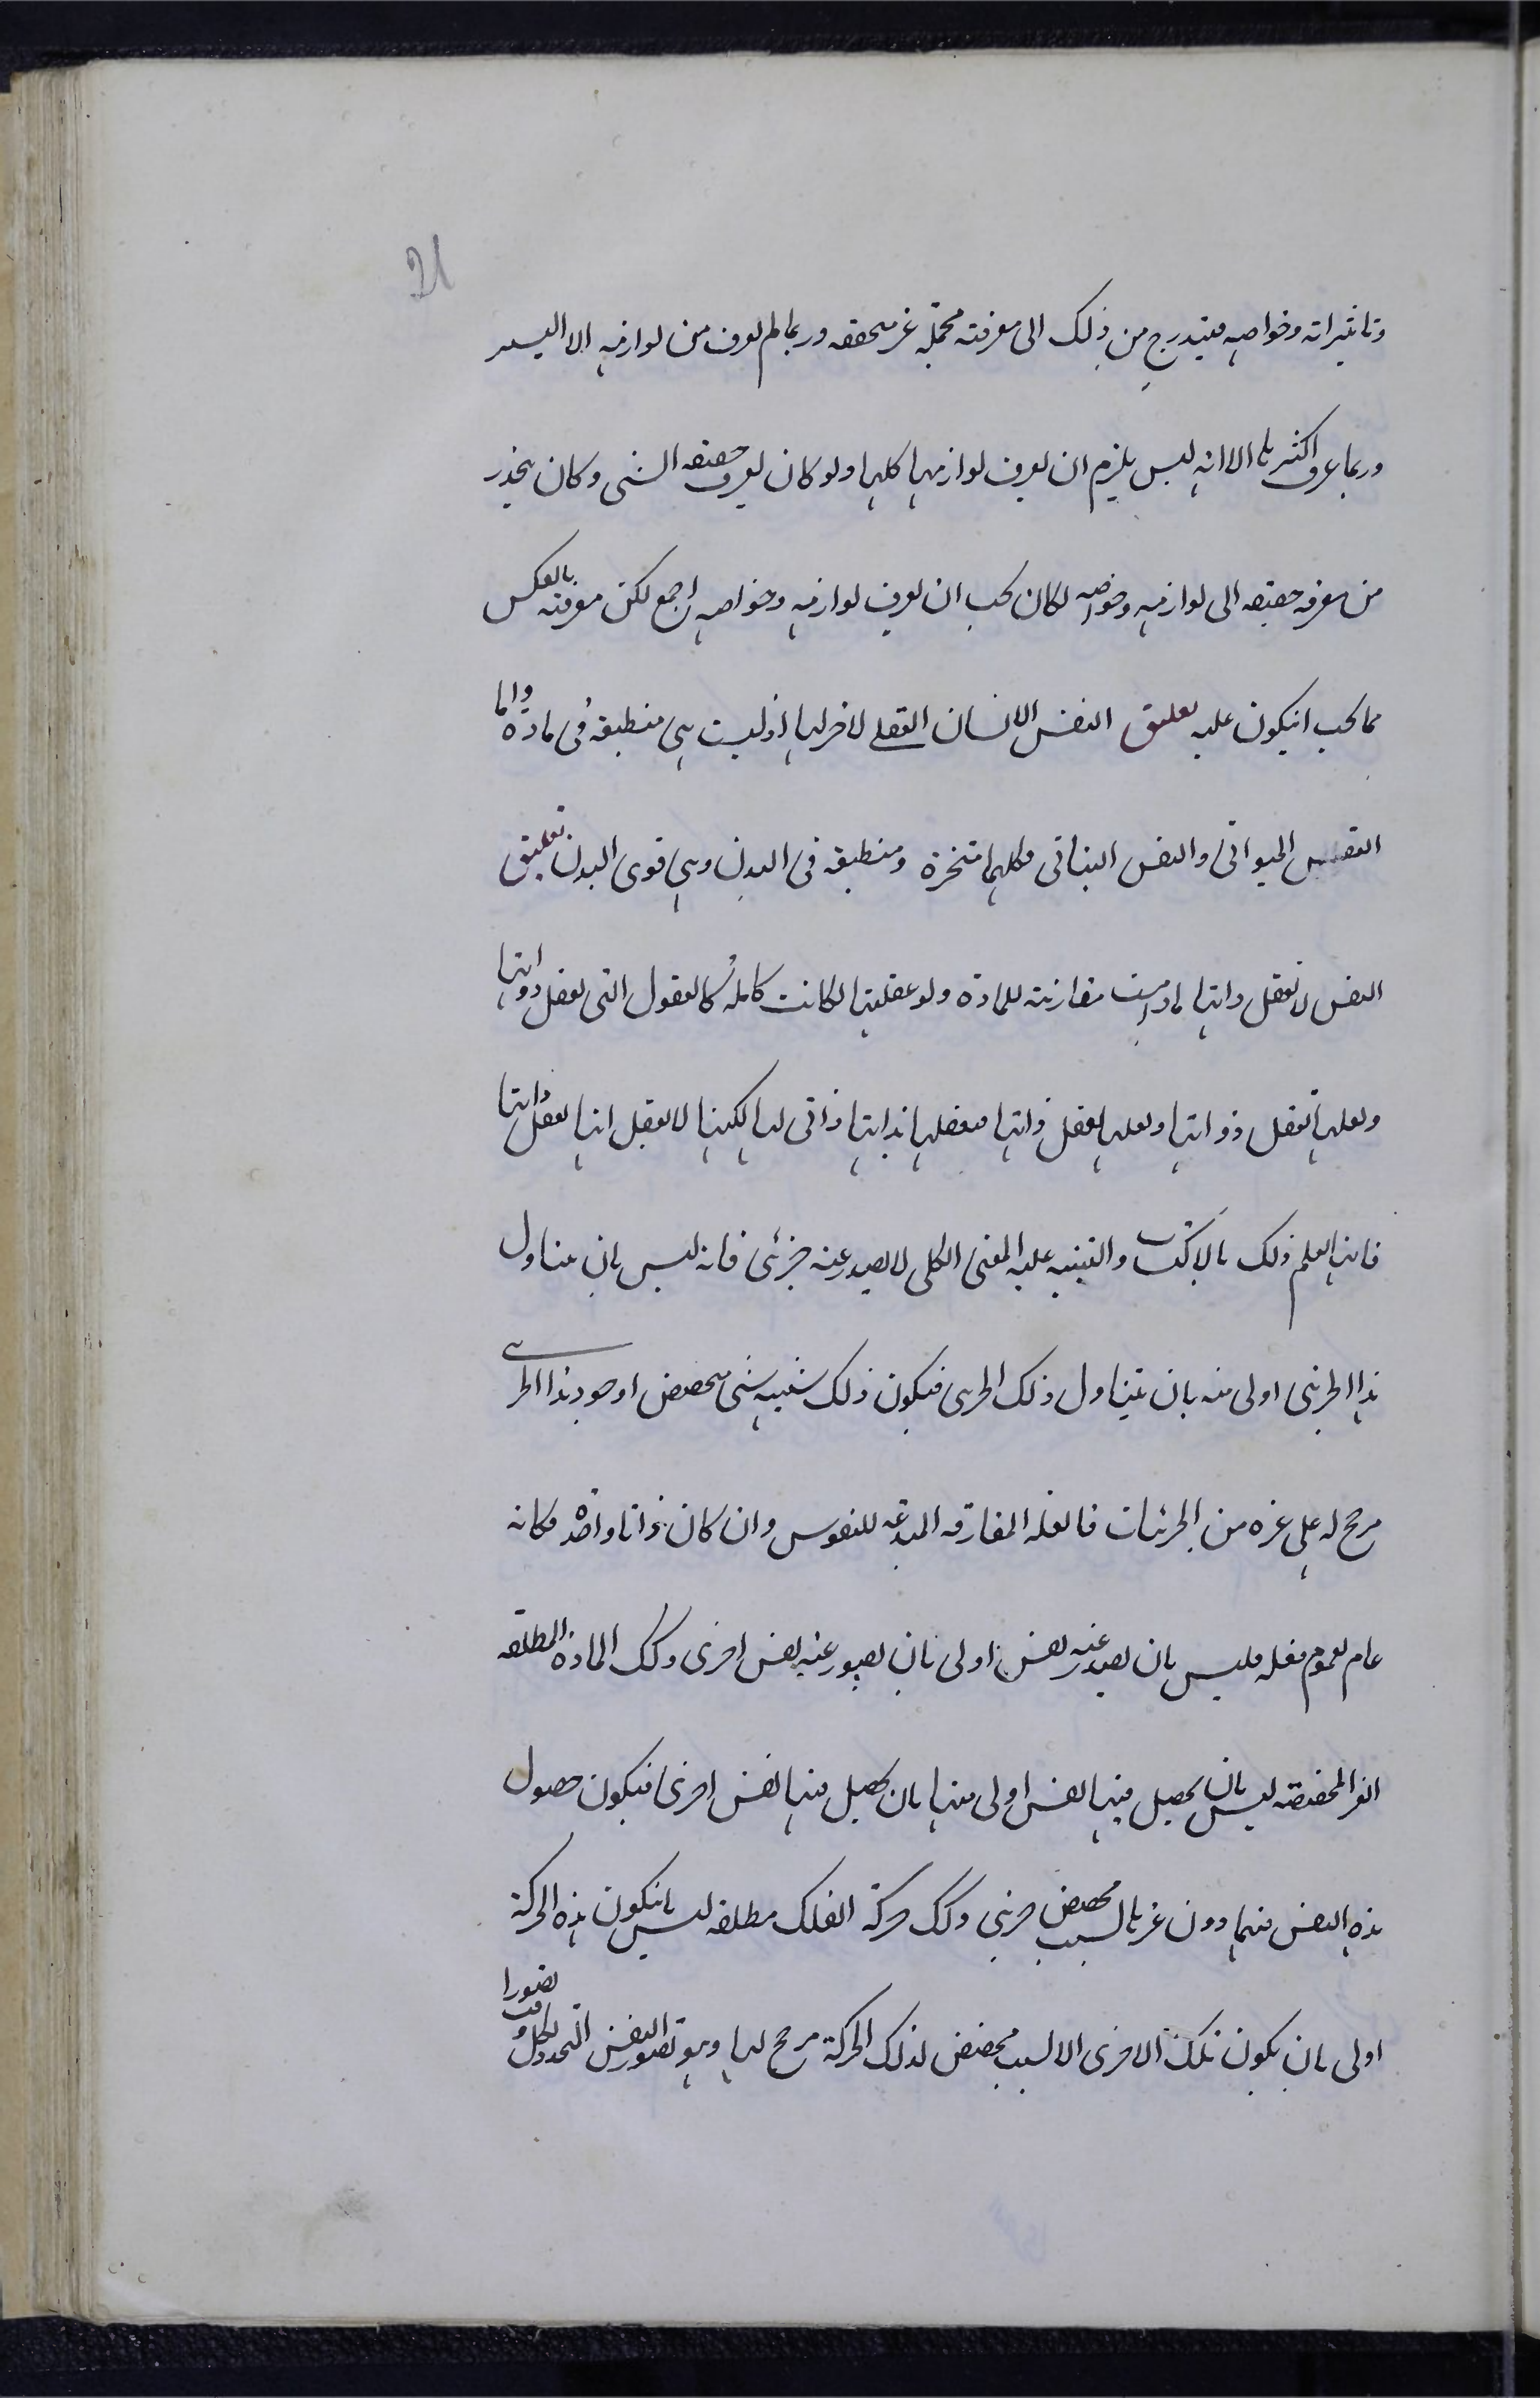 21
وتاثيراته وخواصه فيتدرج من ذلك الى معرفته مجملة غير محققه وربما لم يعرف من لوازمه الا اليسير
وربما عرف اكثرها الا انه ليس يلزم ان يعرف لوازمها كلها ولو كان يعرف حقيقه الشى وكان ينحدر
من معرفه حقيقه الى لوازمه وخواصه لكان يجب ان يعرف لوازمه وخواصه اجمع لكن معرفته بالعكس
مما يجب انيكون عليه تعليق النفس الانسان العقلى لا لها اذ ليست هى منطبقه فى مادة واما
النفس الحيوانى والنفس النباتى فكلهما متجزة ومنطبقه فى البدن وهى قوى البدن تعليق
النفس لا تعقل ذاتها مادامت مقارنته للمادة ولو عقلتها لكانت كامله كالعقول التى تعقل ذواتها
ولعلها تعقل ذواتها ولعلها تعقل ذاتها فعقلها لذاتها ذاتى لها لكنها لا تعقل انها تعقل ذاتها
فانها تعلم ذلك بالاكتساب والتنبيه عليه المعنى الكلى لا يصدر عنه جزئى فانه ليس بان يتناول
هذا الجزئى اولى منه بان يتناول ذلك الجزئى فيكون ذلك شبيه شى مخصص او وجود هذا الجزئى
مرجح له على غيره من الجزئيات فالعله المفارقه المبدعه للنفوس وان كان ذاتا واحدة فكانه
عام لعموم فعله فليس بان يصدر عنه نفس اولى بان يصدر عنه نفس اخرى وكك المادة المطلقه
الغير المخصصه ليس بان يحصل فيها نفس اولى منها بان يحصل فيها نفس اخرى فيكون حصول
هذه النفس فيهما دون غيرها لسبب مخصص جزئى وكك حركة الفلك مطلقه ليس بانيكون هذه الحركة
اولى بان يكون تلك الاخرى الا لسبب مخصص لذلك الحركة مرجح لها وهو تصور النفس المتجدد لكل وقت تصورا